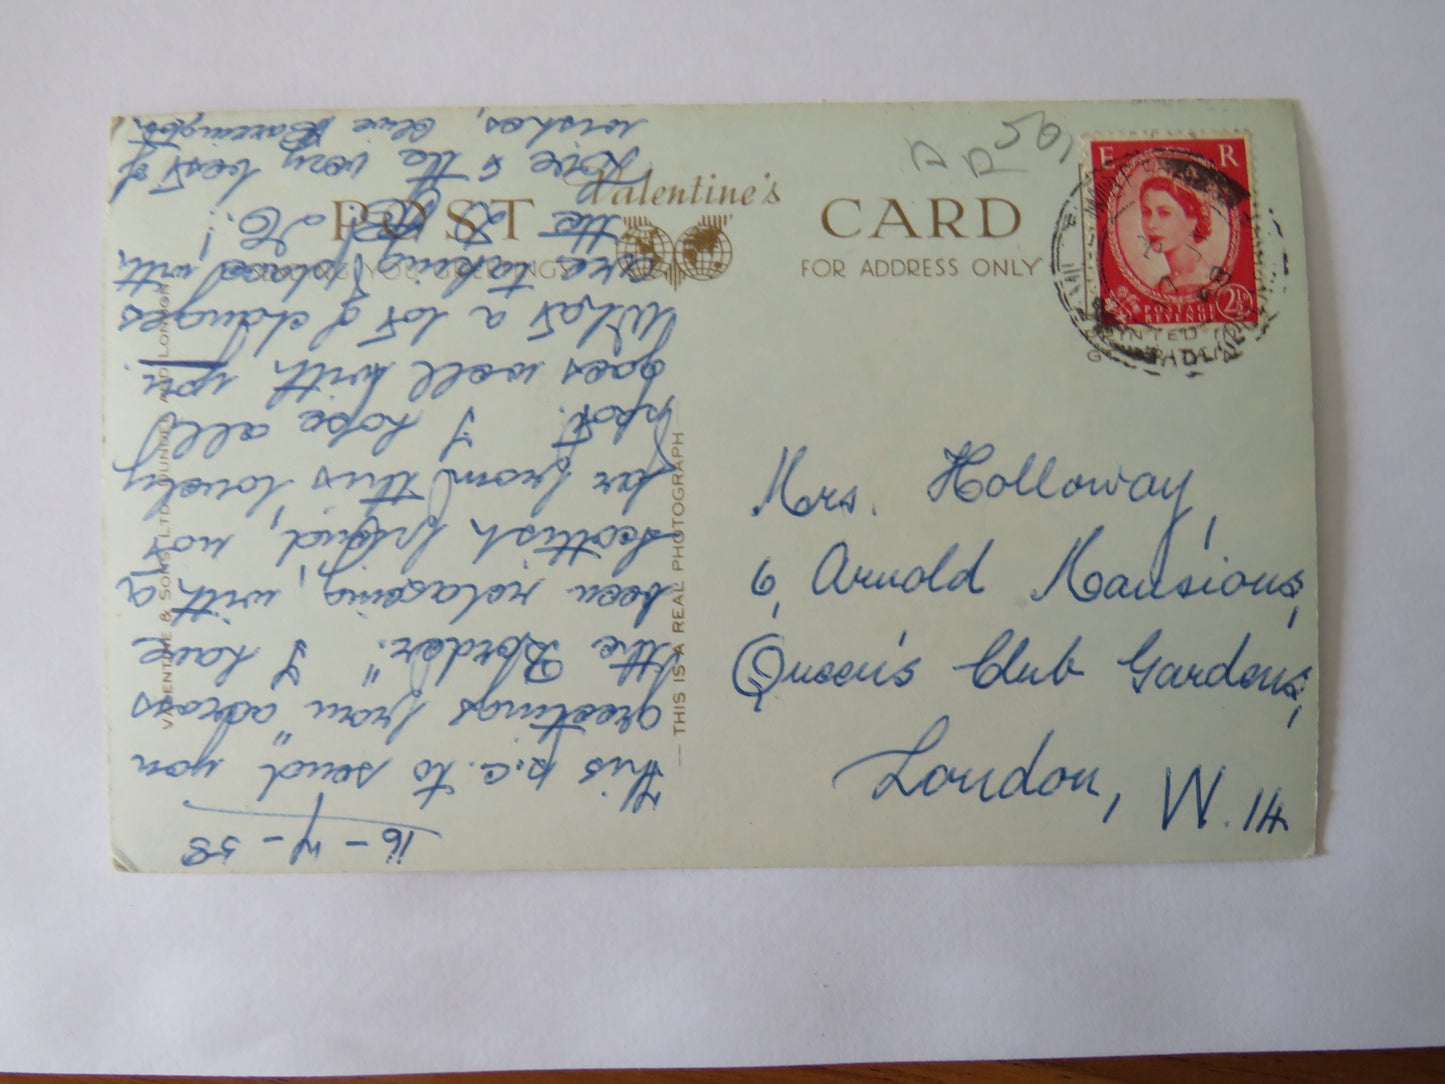 POST CARD
Valentine's
FOR ADDRESS ONLY
E R
2½
Mrs. Holloway,
6, Arnold Mansions,
Queen's Club Gardens,
London, W.14
THIS IS A REAL PHOTOGRAPH
VALENTINE & SONS LTD. DUNDEE AND LONDON
16 - 4 - 58
This p.c. to send you
greetings from "across
the Border." I have
been relaxing, with a
Scottish friend, not
far from this lovely
spot. I hope all
goes well with you.
What a lot of changes
are taking place with
the
Love & the very best of
wishes, Olive Barrington